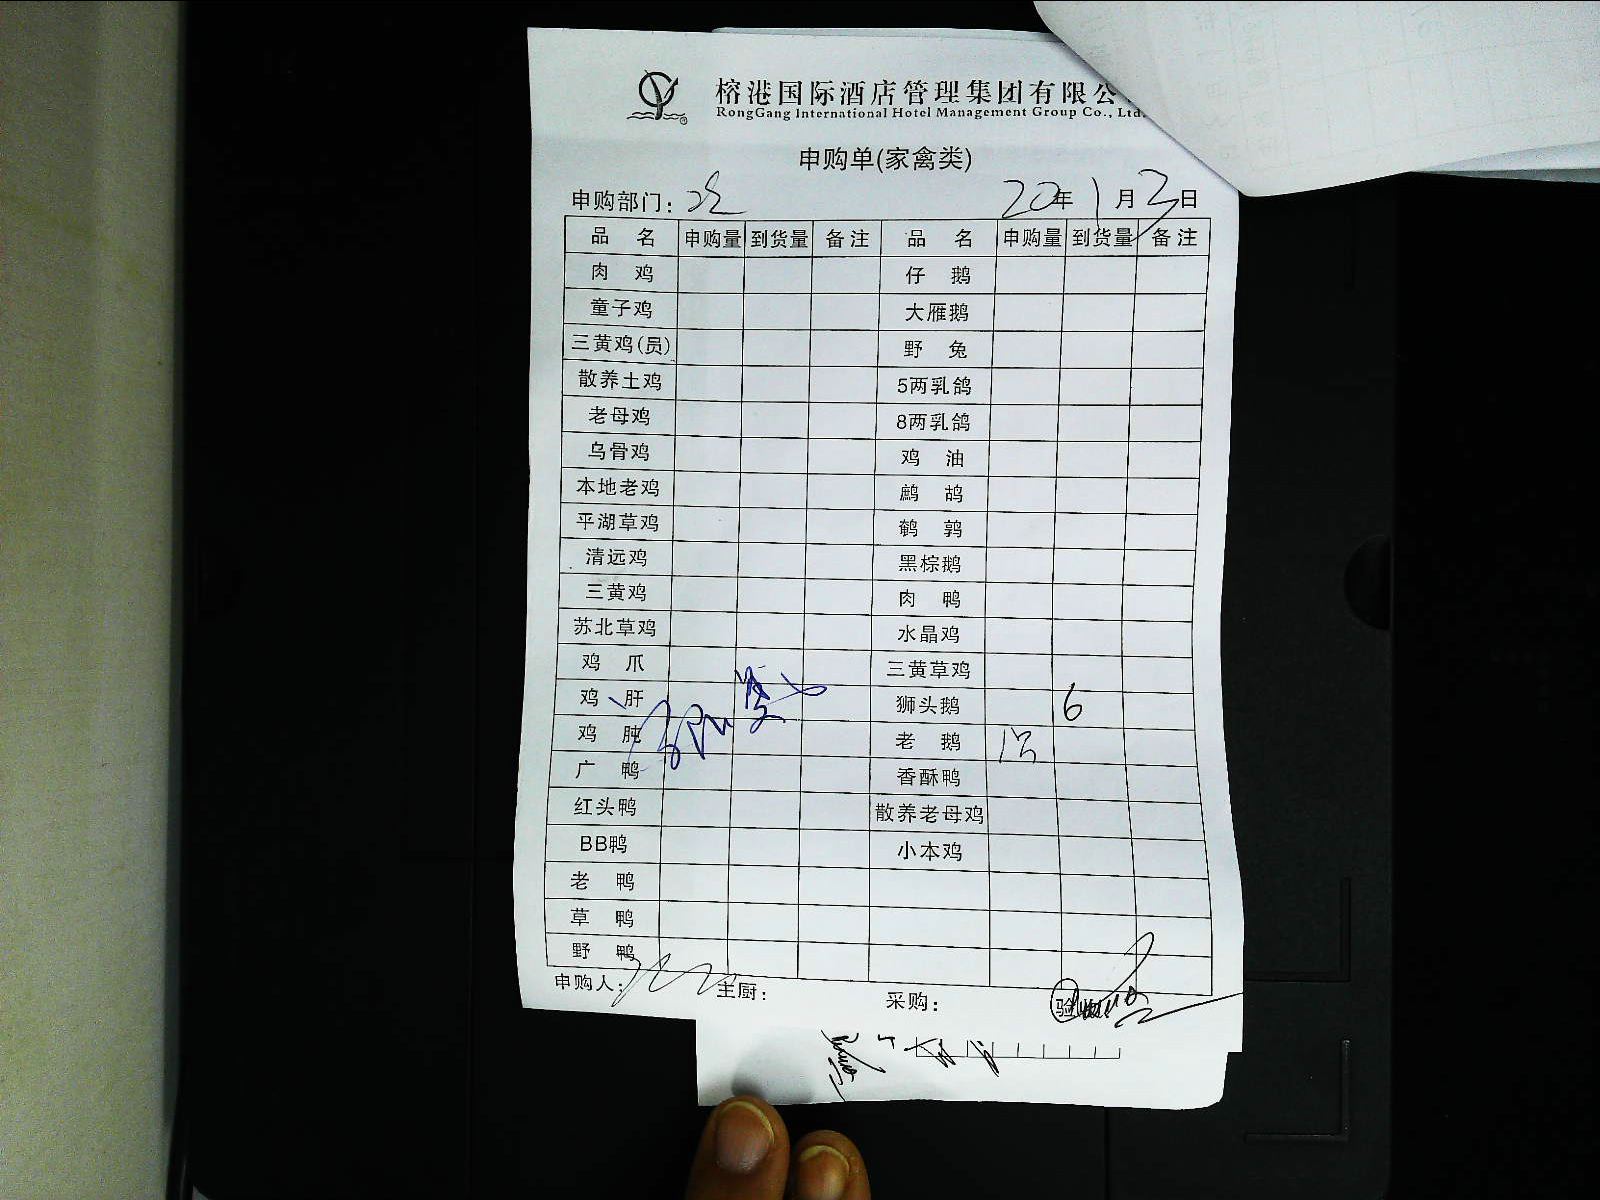 榕港国际酒店管理集团有限公
RongGang International Hotel Management Group Co., Ltd.
申购单(家禽类)
申购部门: 20年1月3日
品 名 申购量 到货量 备注 品 名 申购量 到货量 备注
肉 鸡 仔 鹅
童子鸡 大雁鹅
三黄鸡(员) 野 兔
散养土鸡 5两乳鸽
老母鸡 8两乳鸽
乌骨鸡 鸡 油
本地老鸡 鹧 鸪
平湖草鸡 鹌 鹑
清远鸡 黑棕鹅
三黄鸡 肉 鸭
苏北草鸡 水晶鸡
鸡 爪 三黄草鸡
鸡 肝 狮头鹅 6
鸡 肫 老 鹅
广 鸭 香酥鸭
红头鸭 散养老母鸡
BB鸭 小本鸡
老 鸭
草 鸭
野 鸭
申购人: 主厨: 采购: 验